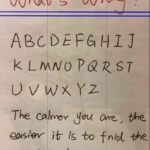 What's Wrong?
A B C D E F G H I J
K L M N O P Q R S T
U V W X Y Z
The calmer you are, the
easier it Is to fnid the